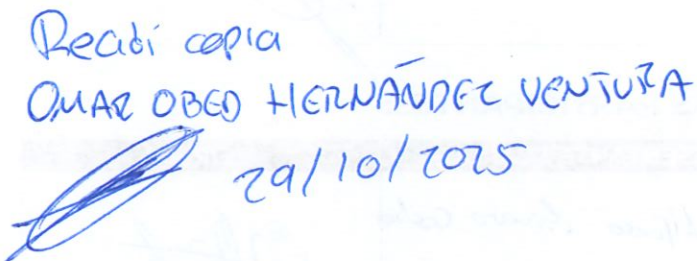 Recibí copia
OMAR OBED HERNÁNDEZ VENTURA
29/10/2025